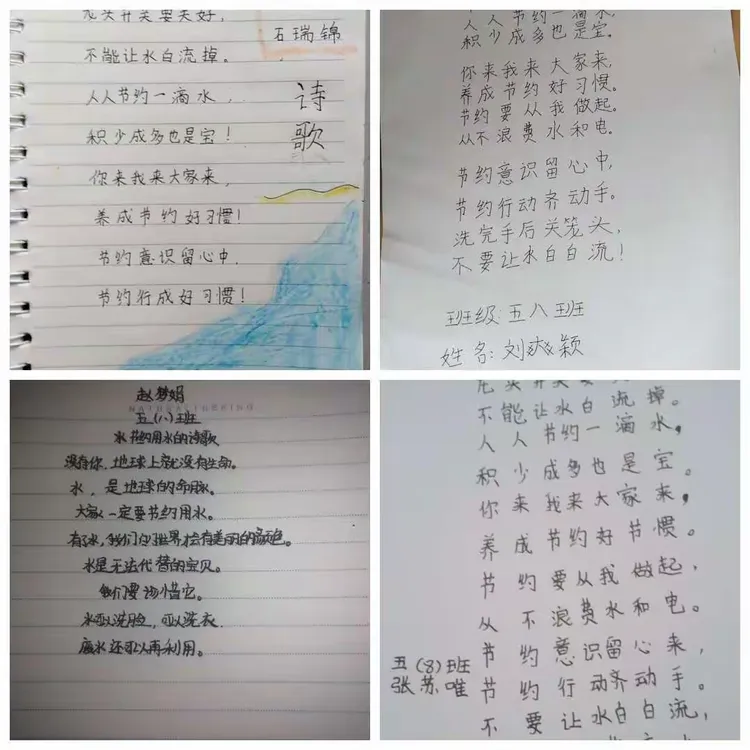 龙头开关要关好,
石瑞锦
不能让水白流掉。
诗歌
人人节约一滴水,
积少成多也是宝!
你来我来大家来,
养成节约好习惯!
节约意识留心中
节约行成好习惯!
人人节约一滴水,
积少成多也是宝。
你来我来大家来,
养成节约好习惯。
节约要从我做起。
从不浪费水和电。
节约意识留心中,
节约行动齐动手。
洗完手后关笼头,
不要让水白白流!
班级:五八班
姓名:刘爽颖
赵梦娟
五(八)班
水节约用水的诗歌
没有你,地球上就没有生命。
水,是地球的命脉。
大家一定要节约用水。
有水,我们的世界才会有美丽的颜色。
水是无法代替的宝贝。
我们要珍惜它。
水可以洗脸,可以洗衣
废水还可以再利用。
不能让水白流掉。
人人节约一滴水,
积少成多也是宝。
你来我来大家来,
养成节约好节惯。
节约要从我做起,
从不浪费水和电。
节约意识留心来,
五(8)班
张苏唯
节约行动齐动手。
不要让水白白流,